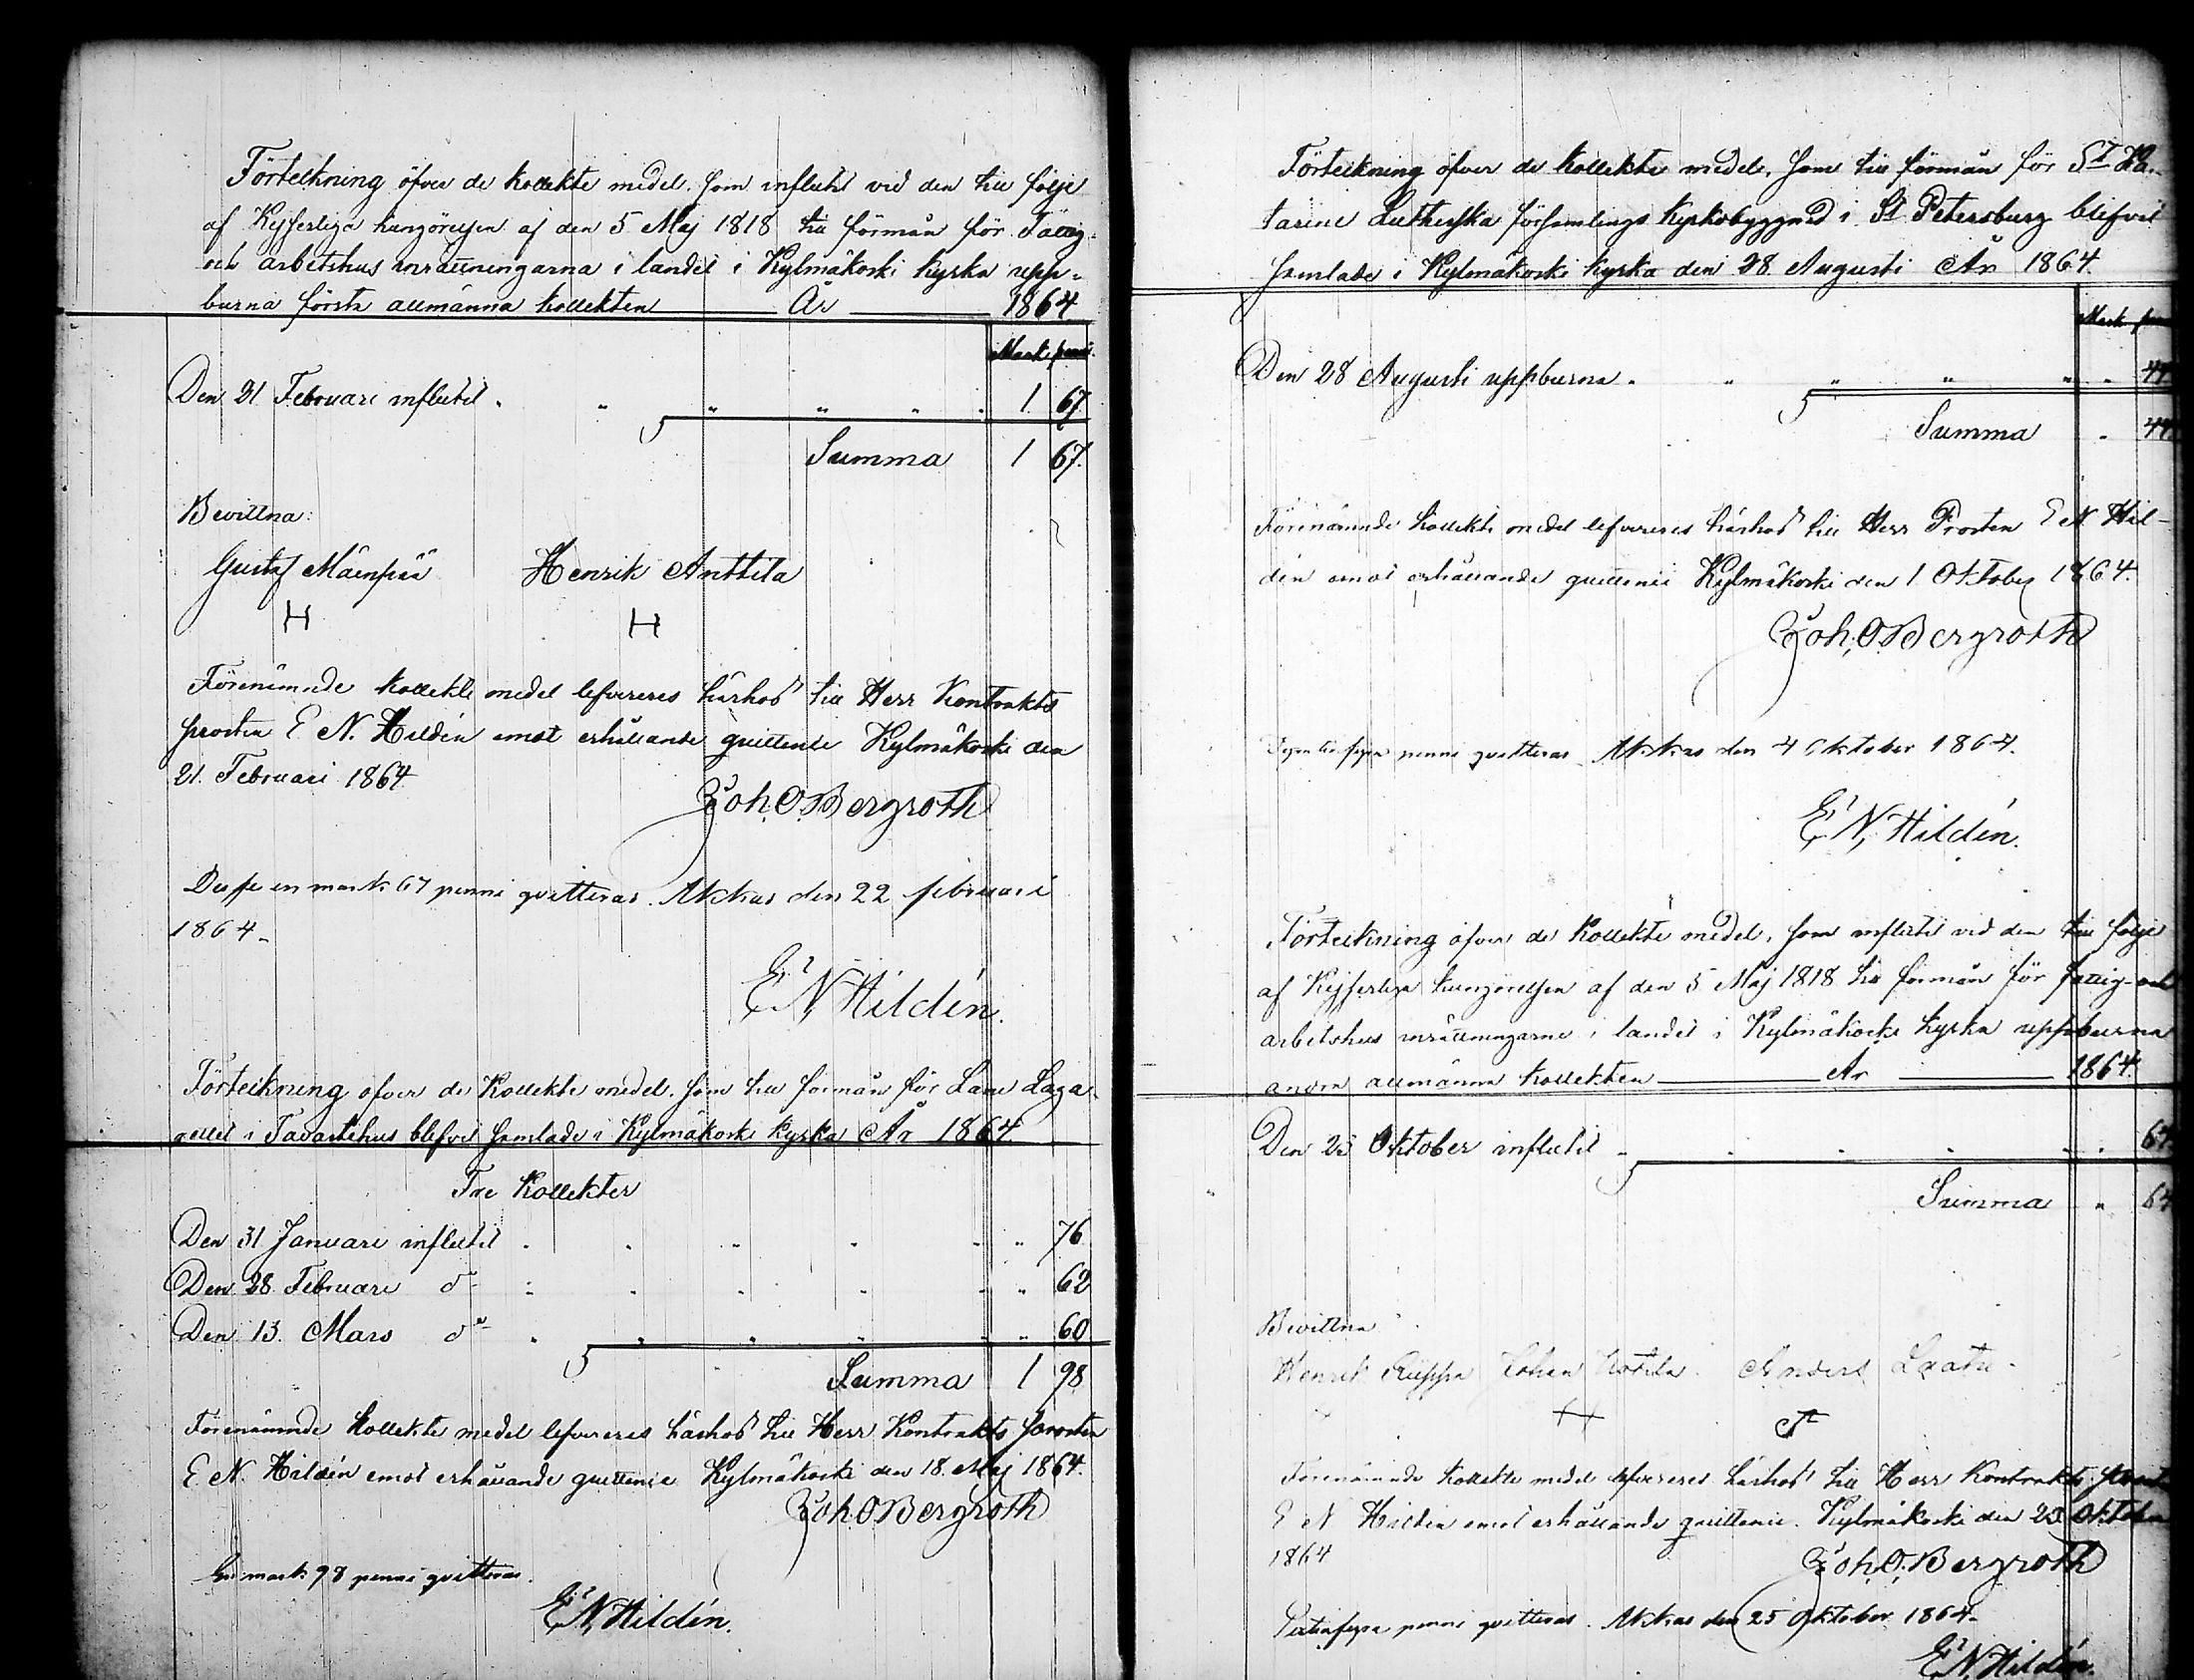 Förteckning öfver de Kollekte medel, som influtit vid den till följe
af Kejserliga kungörelsen af den 5 Maj 1818 till förmån för Fattig-
och arbetshus inrättningarna i landet i Kylmäkoski kyrka upp-
burna första allmänna kollekten År 1864
Mark penni
Den 21 Februari influtit 1 67
Summa 1 67.
Bevittna:
Gustaf Mäenpää Henrik Anttila
H H
Förenämnde kollekte medel lefvereres härhos till Herr Kontrakts
prosten E. N. Hildén emot erhållande quittence Kylmäkoski den
21. Februari 1864
Joh. O. Bergroth
Desse en mark 67 penni qvitteras. Akkas den 22 februari
1864.
E. N. Hildén.
Förteckning öfver de Kollekte medel, som till förmån för Läne Laza-
rettet i Tavastehus blefvit samlade i Kylmäkoski Kyrka År 1864
Tre Kollekter
Den 31 Januari influtit 76
Den 28 Februari d:o 62
Den 13. Mars d:o 60
Summa 1 98
Förenämnde Kollekte medel lefvereres härhos till Herr Kontrakts prosten
E. N. Hildén emot erhållande quittence Kylmäkoski den 18. Maj 1864.
Joh. O. Bergroth
En mark 98 penni qvitteras.
E. N. Hildén.
Förteckning öfver de Kollekte medel, som till förmån för St Ka-
tarine Lutherska församlings kyrkobyggnad i St Petersburg blefvit
samlade i Kylmäkoski kyrka den 28 Augusti År 1864.
Mark
Den 28 Augusti uppburna 44
Summa 44
Förenämnde Kollekte medel lefvereres härhos till Herr Prosten E N Hil-
dén emot erhållande quittence Kylmäkoski den 1. Oktober 1864.
Joh. O. Bergroth
Fyratiofyra penni qvitteras. Akkas den 4 Oktober 1864.
E. N. Hildén.
Förteckning öfver de Kollekte medel, som influtit vid den till följe
af Kejserliga kungörelsen af den 5 Maj 1818 till förmån för fattig- och
arbetshus inrättningarne i landet i Kylmäkoski kyrka uppburna
andra allmänna kollekten År 1864.
Den 23 Oktober influtit 64
Summa 64
Bevittna
Henrik Johan Anders
Förenämnde Kollekte medel lefvereres härhos till Herr Kontrakts
E N Hildén emot erhållande quittence. Kylmäkoski den 23 Oktober
1864
Joh. O. Bergroth
Sextiofyra penni qvitteras. Akkas den 25 Oktober 1864.
E. N. Hildén.